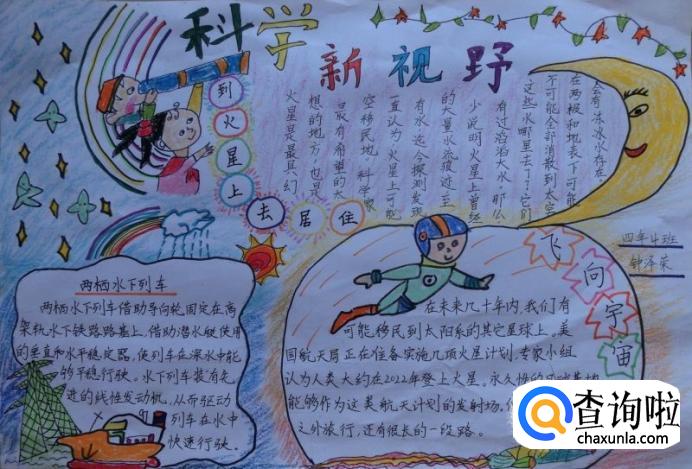 科学
新视野
到火星上去居住
火星是最具幻
想的地方,也是
最有希望的太
空移民地。科学家
直认为,火星上可能
有水迄今探测发现
的大量水流痕迹,至
少说明火星上曾经
有过滔滔大水。那么,
这些水哪里去了?它们
不可能全部消散到太空
在两极和地表下可能
会有冻冰水存在。
四年4班
钟泽荣
两栖水下列车
两栖水下列车借助导向轮固定在高
架轨水下铁路路基上,借助潜水艇使用
的垂直和水平稳定器,使列车在深水中能
够平稳行驶。水下列车装有先
进的线性发动机,从而驱动
列车在水中
快速行驶。
飞向宇宙
在未来几十年内,我们有
可能移民到太阳系的其它星球上。美
国航天局正在准备实施几项火星计划.专家小组
认为人类大约在2022年登上火星。永久性的
能够作为这类航天计划的发射场。
之外旅行,还有很长的一段路。
查询啦
chaxunla.com